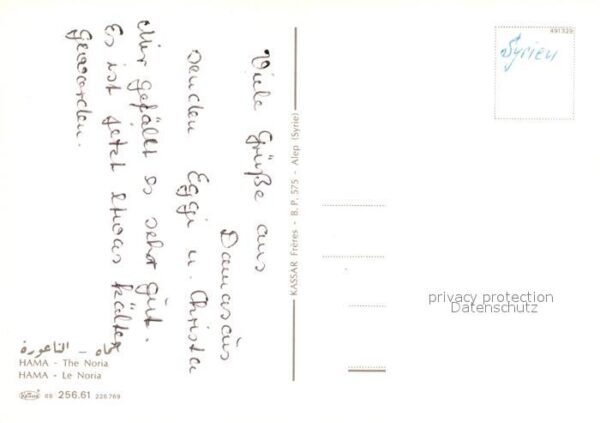 Viele Grüße aus
Damaskus
senden Eggi u. Christa
Mir gefällt es sehr gut.
Es ist jetzt etwas kälter
geworden.
حماه - الناعورة
HAMA - The Noria
HAMA - Le Noria
69 256.61 226769
KASSAR Frères - B.P. 575 - Alep (Syrie)
491329
Syrien
privacy protection
Datenschutz